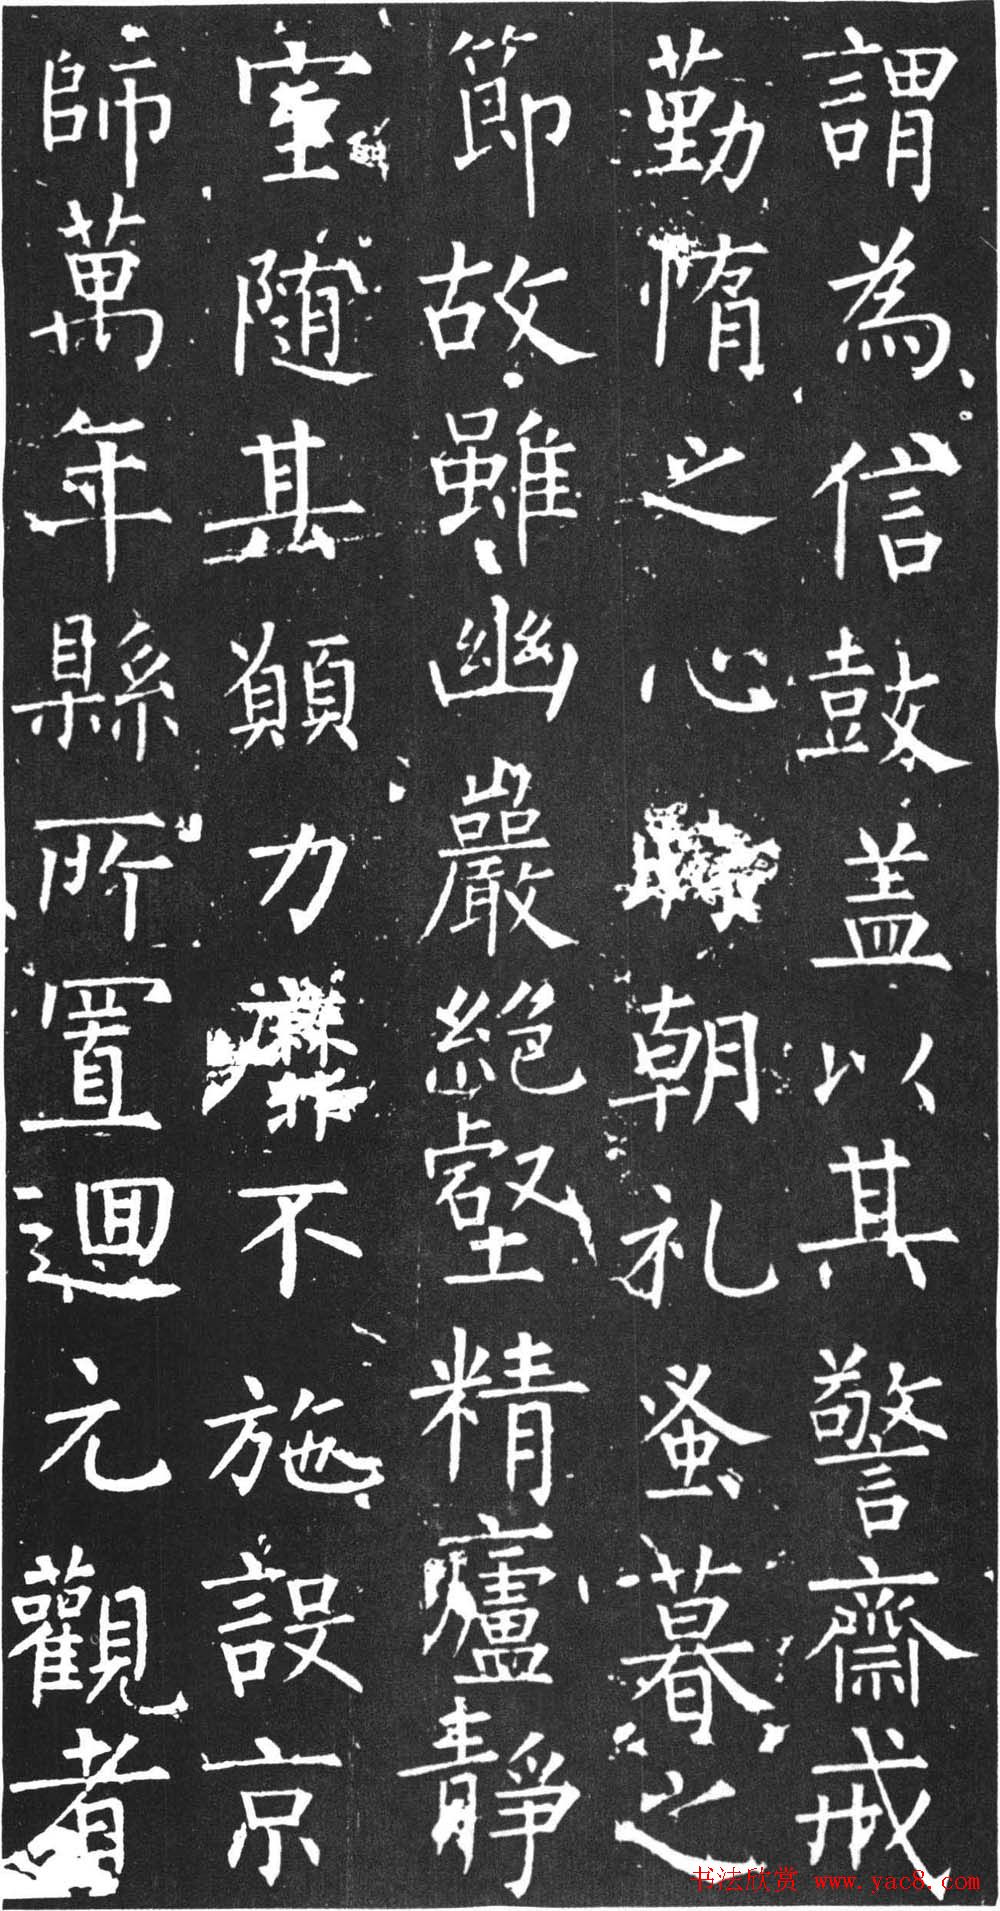 謂為信鼓盖以其警齋戒
勤惰之心時朝礼蚤暮之
節故雖幽巖絕壑精廬靜
室隨其願力靡不施設京
師萬年縣所置迴元觀者
书法欣赏 www.yac8.com